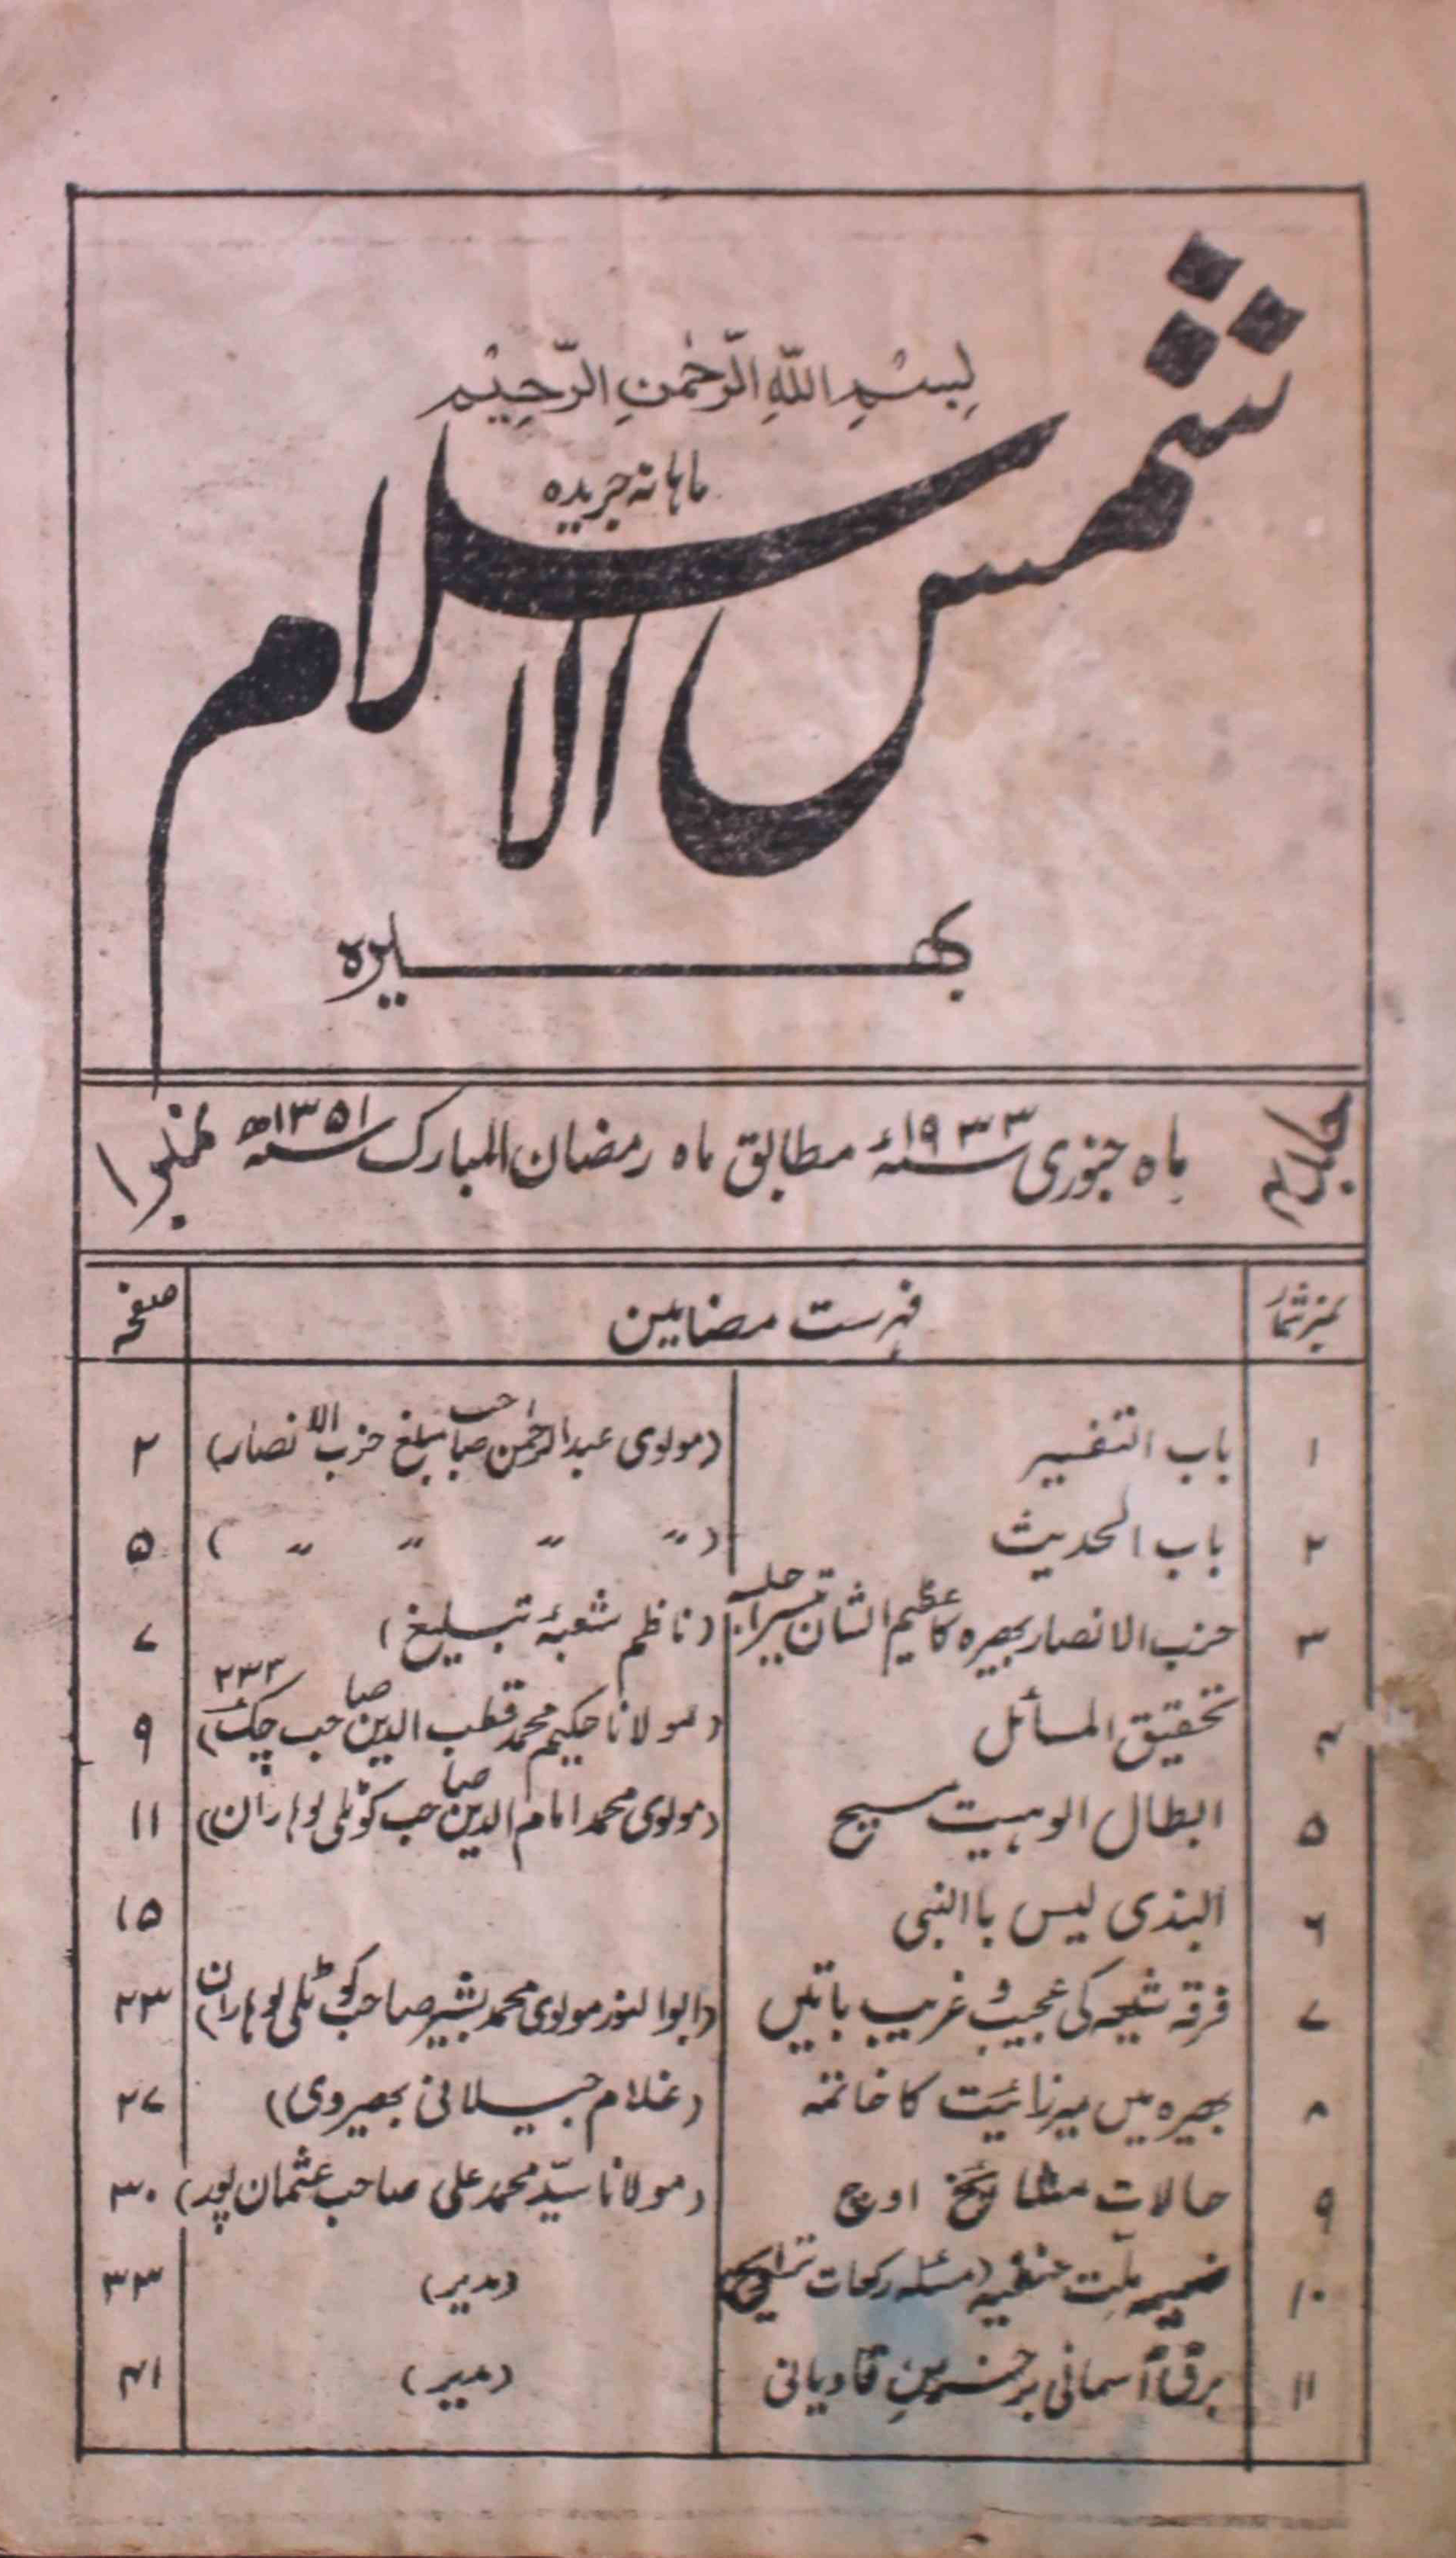 بِسْمِ اللّٰهِ الرَّحْمٰنِ الرَّحِيْمِ
ماہانہ جریدہ
شمس الاسلام
بھیرہ
جلد ۴ ماہ جنوری ۱۹۳۳ء مطابق ماہ رمضان المبارک ۱۳۵۱ھ نمبر ۱
نمبر شمار فہرست مضامین صفحہ
۱ باب التفسیر (مولوی عبدالرحمٰن صاحب مبلغ حزب الانصار) ۲
۲ باب الحدیث (〃 〃 〃 〃) ۵
۳ حزب الانصار بھیرہ کا عظیم الشان تیسرا جلسہ (ناظم شعبۂ تبلیغ) ۷
۴ تحقیق المسائل (مولانا حکیم محمد قطب الدین صاحب چک ۲۳۳) ۹
۵ ابطال الوہیت مسیح (مولوی محمد امام الدین صاحب کوٹلی لوہاراں) ۱۱
۶ البذی لیس باالنبی ۱۵
۷ فرقہ شیعہ کی عجیب و غریب باتیں (ابوالنور مولوی محمد بشیر صاحب کوٹلی لوہاراں) ۲۳
۸ بھیرہ میں میرزائیت کا خاتمہ (غلام جیلانی بھیروی) ۲۷
۹ حالات مشائخ اوچ (مولانا سیّد محمد علی صاحب عثمان پور) ۳۰
۱۰ ضمیمہ ملّت حنفیہ (مسئلہ رکعات تراویح) (مدیر) ۳۳
۱۱ برق آسمانی بر خرمنِ قادیانی (مدیر) ۴۱